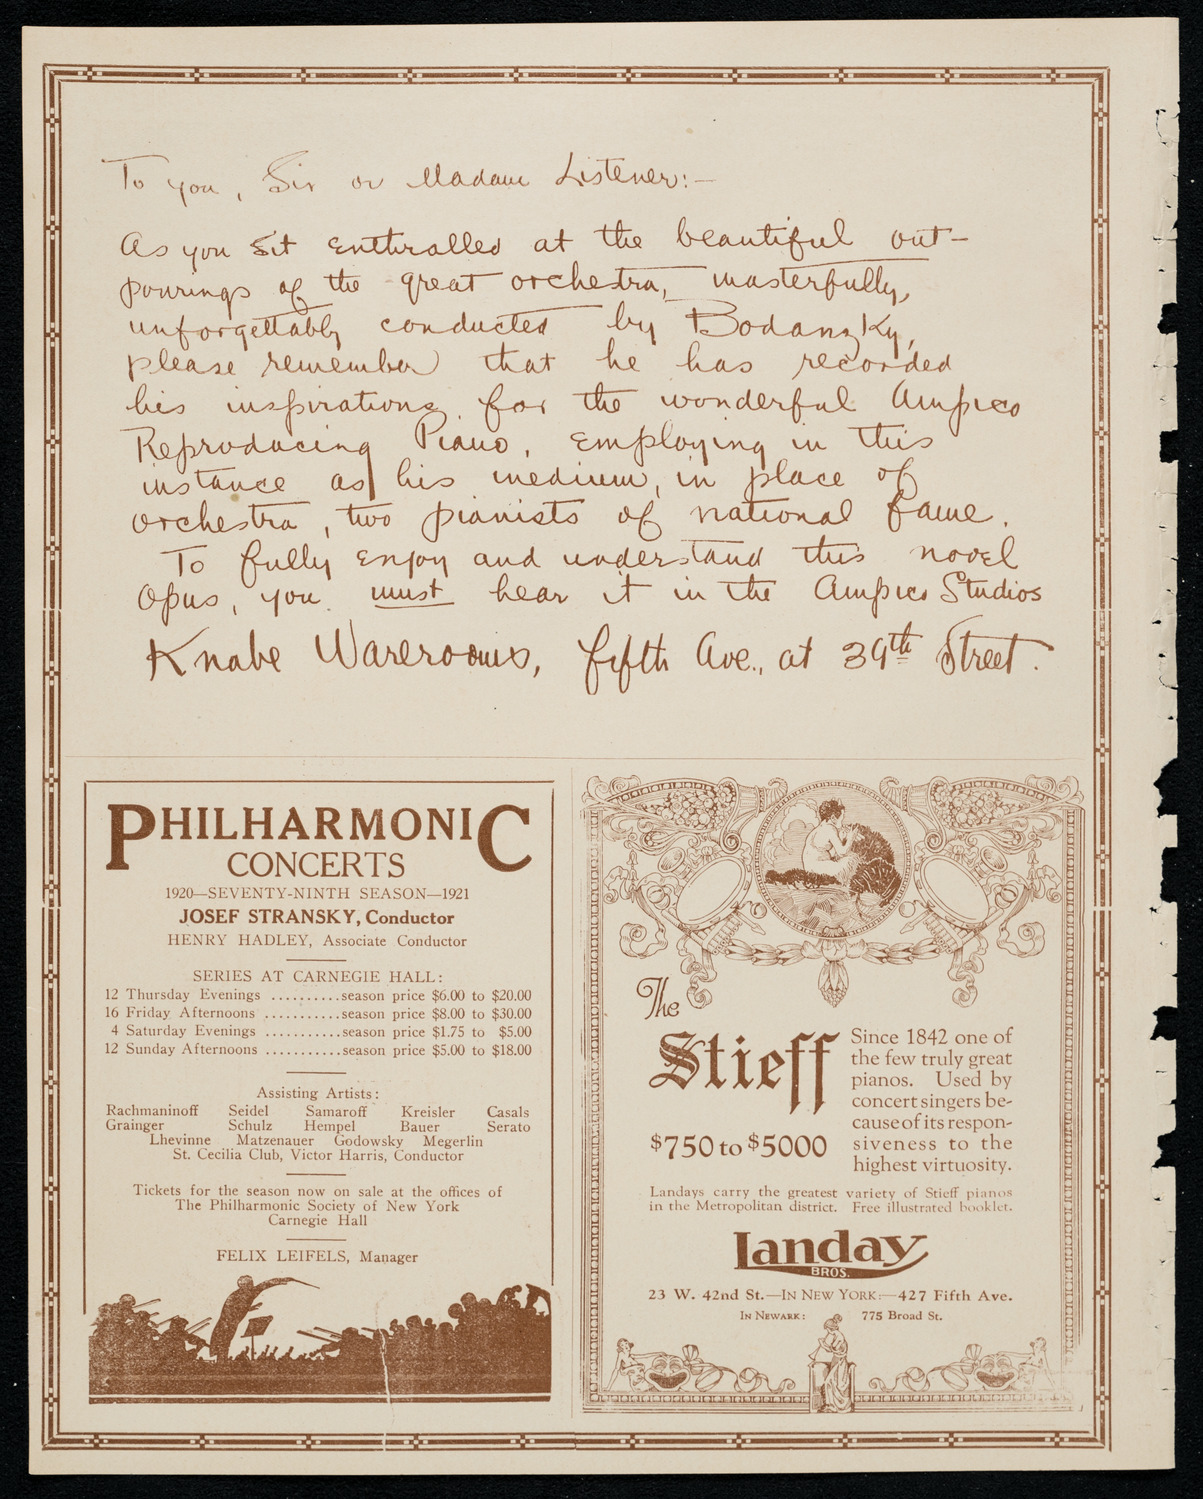 To you, Sir or Madam Listener:—
As you sit enthralled at the beautiful out-
pourings of the great orchestra, masterfully,
unforgettably conducted by Bodanzky,
please remember that he has recorded
his inspirations for the wonderful Ampico
Reproducing Piano, employing in this
instance as his medium, in place of
orchestra, two pianists of national fame.
To fully enjoy and understand this novel
opus, you must hear it in the Ampico Studios
Knabe Warerooms, Fifth Ave., at 39th Street.
PHILHARMONIC
CONCERTS
1920—SEVENTY-NINTH SEASON—1921
JOSEF STRANSKY, Conductor
HENRY HADLEY, Associate Conductor
SERIES AT CARNEGIE HALL:
12 Thursday Evenings ..........season price $6.00 to $20.00
16 Friday Afternoons ...........season price $8.00 to $30.00
4 Saturday Evenings ...........season price $1.75 to $5.00
12 Sunday Afternoons ...........season price $5.00 to $18.00
Assisting Artists:
Rachmaninoff Seidel Samaroff Kreisler Casals
Grainger Schulz Hempel Bauer Serato
Lhevinne Matzenauer Godowsky Megerlin
St. Cecilia Club, Victor Harris, Conductor
Tickets for the season now on sale at the offices of
The Philharmonic Society of New York
Carnegie Hall
FELIX LEIFELS, Manager
The
Stieff
$750 to $5000
Since 1842 one of
the few truly great
pianos. Used by
concert singers be-
cause of its respon-
siveness to the
highest virtuosity.
Landays carry the greatest variety of Stieff pianos
in the Metropolitan district. Free illustrated booklet.
Landay
BROS.
23 W. 42nd St.—IN NEW YORK:—427 Fifth Ave.
IN NEWARK: 775 Broad St.